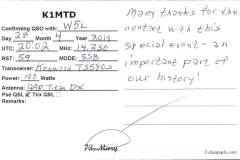 K1MTD
Confirming QSO with: W5L
Day 28 Month 4 Year 2019
UTC: 20:02 MHz 14.250
RST: 59 MODE: SSB
Transceiver: Kenwood TS590s
Power: 100 Watts
Antenna: GAP Titan DX
Pse QSL Tex QSL
Remarks:
Many thanks for the
contact with this
special event - an
important part of
our history!